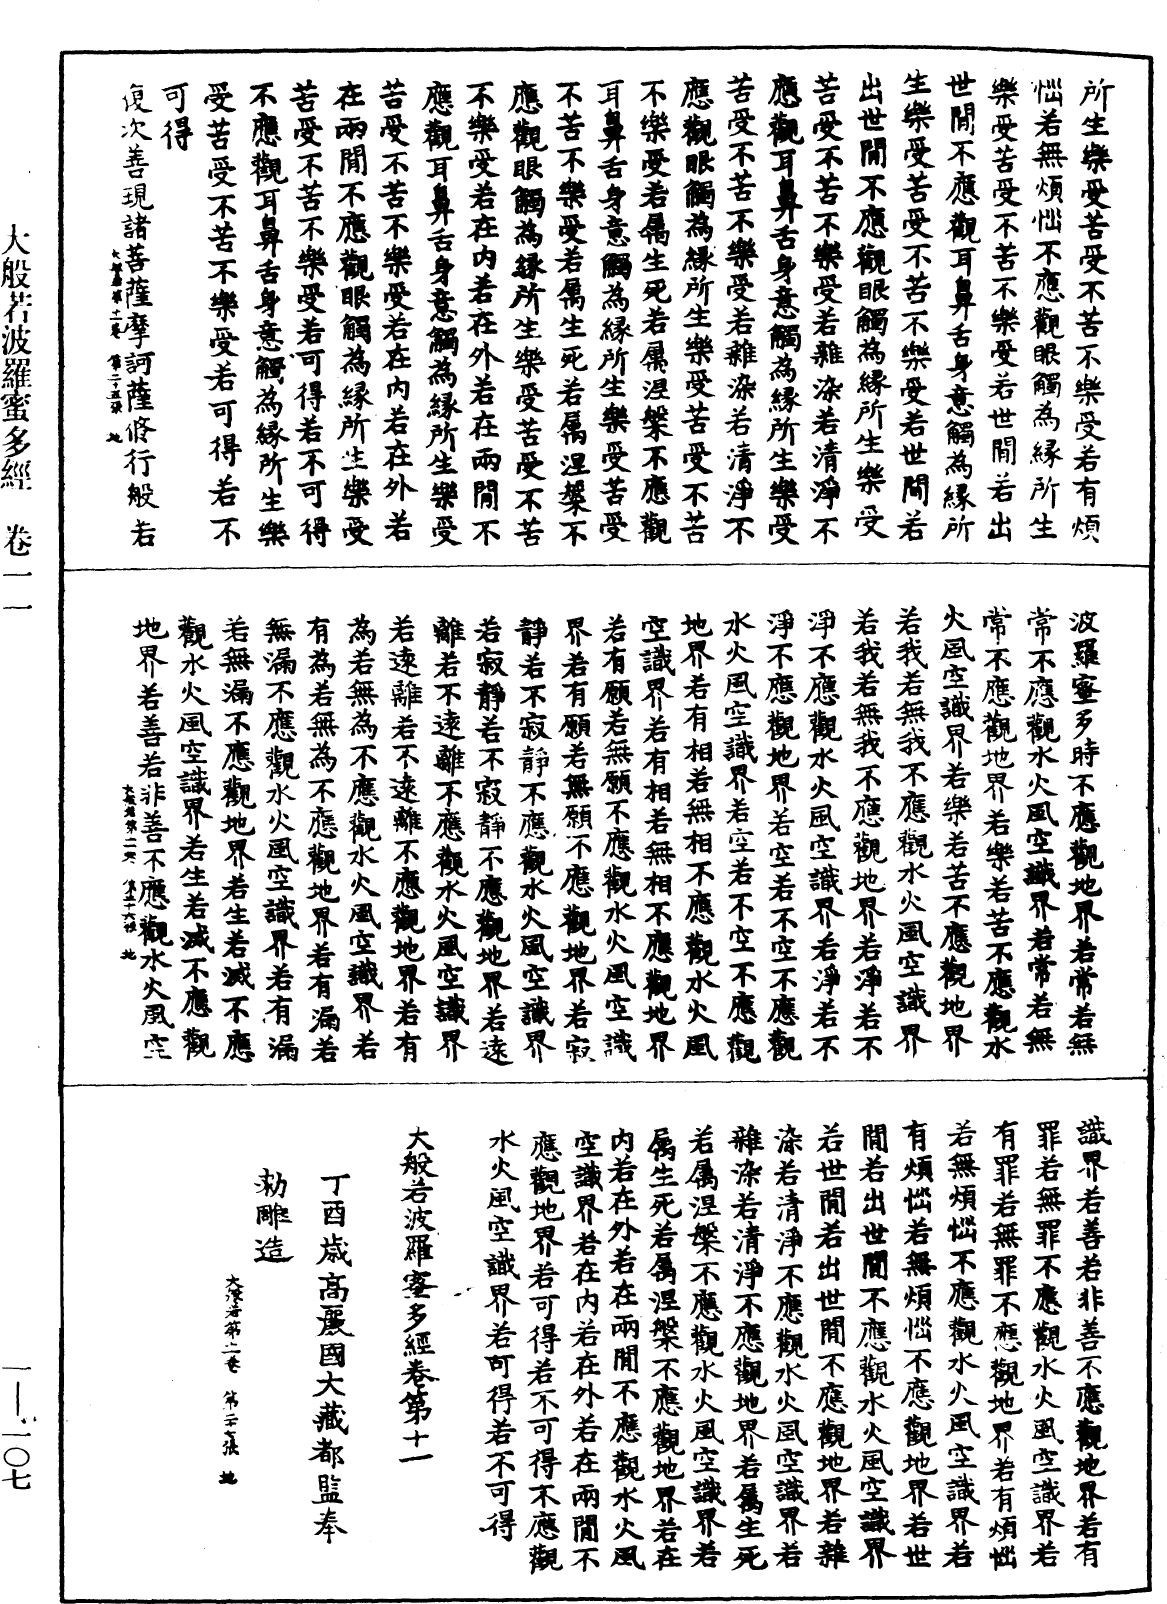 所生樂受苦受不苦不樂受若有煩
惱若無煩惱不應觀眼觸為緣所生
樂受苦受不苦不樂受若世間若出
世間不應觀耳鼻舌身意觸為緣所
生樂受苦受不苦不樂受若世間若
出世間不應觀眼觸為緣所生樂受
苦受不苦不樂受若雜染若清淨不
應觀耳鼻舌身意觸為緣所生樂受
苦受不苦不樂受若雜染若清淨不
應觀眼觸為緣所生樂受苦受不苦
不樂受若属生死若属涅槃不應觀
耳鼻舌身意觸為緣所生樂受苦受
不苦不樂受若属生死若属涅槃不
應觀眼觸為緣所生樂受苦受不苦
不樂受若在内若在外若在兩間不
應觀耳鼻舌身意觸為緣所生樂受
苦受不苦不樂受若在内若在外若
在兩間不應觀眼觸為緣所生樂受
苦受不苦不樂受若可得若不可得
不應觀耳鼻舌身意觸為緣所生樂
受苦受不苦不樂受若可得若不
可得
復次善現諸菩薩摩訶薩修行般若
大般若第十一卷 第二十五張 地
波羅蜜多時不應觀地界若常若無
常不應觀水火風空識界若常若無
常不應觀地界若樂若苦不應觀水
火風空識界若樂若苦不應觀地界
若我若無我不應觀水火風空識界
若我若無我不應觀地界若淨若不
淨不應觀水火風空識界若淨若不
淨不應觀地界若空若不空不應觀
水火風空識界若空若不空不應觀
地界若有相若無相不應觀水火風
空識界若有相若無相不應觀地界
若有願若無願不應觀水火風空識
界若有願若無願不應觀地界若寂
靜若不寂靜不應觀水火風空識界
若寂靜若不寂靜不應觀地界若遠
離若不遠離不應觀水火風空識界
若遠離若不遠離不應觀地界若有
為若無為不應觀水火風空識界若
有為若無為不應觀地界若有漏若
無漏不應觀水火風空識界若有漏
若無漏不應觀地界若生若滅不應
觀水火風空識界若生若滅不應觀
地界若善若非善不應觀水火風空
識界若善若非善不應觀地界若有
罪若無罪不應觀水火風空識界若
有罪若無罪不應觀地界若有煩惱
若無煩惱不應觀水火風空識界若
有煩惱若無煩惱不應觀地界若世
間若出世間不應觀水火風空識界
若世間若出世間不應觀地界若雜
染若清淨不應觀水火風空識界若
雜染若清淨不應觀地界若属生死
若属涅槃不應觀水火風空識界若
属生死若属涅槃不應觀地界若在
内若在外若在兩間不應觀水火風
空識界若在内若在外若在兩間不
應觀地界若可得若不可得不應觀
水火風空識界若可得若不可得
大般若波羅蜜多經卷第十一
丁酉歲高麗國大藏都監奉
勑雕造
大般若波羅蜜多經 卷一一
一—一〇七